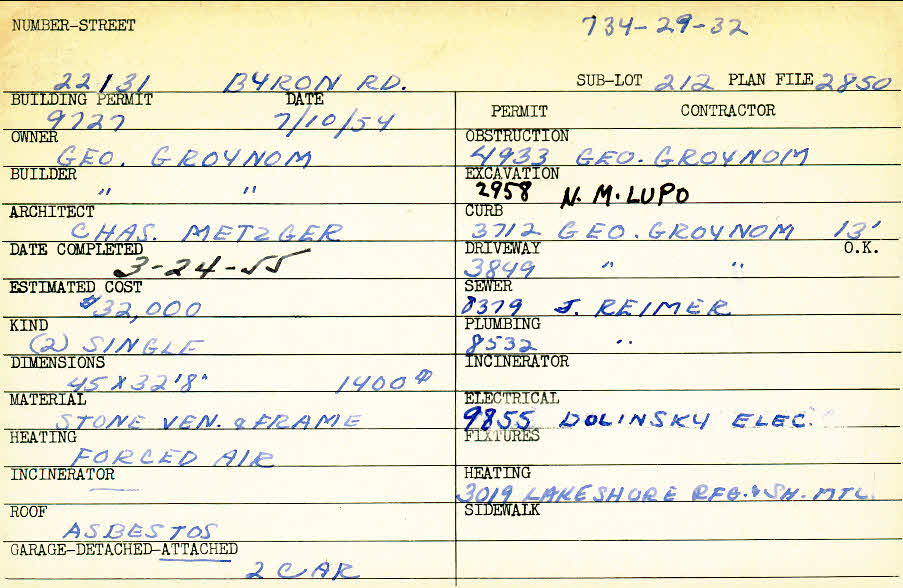 NUMBER-STREET 734-29-32
22131 BYRON RD. SUB-LOT 212 PLAN FILE 2850
BUILDING PERMIT DATE
9727 7/10/54
OWNER
GEO. GROYNOM
BUILDER
" "
ARCHITECT
CHAS. METZGER
DATE COMPLETED
3-24-55
ESTIMATED COST
$32,000
KIND
(2) SINGLE
DIMENSIONS
45 X 32'8" 1400
MATERIAL
STONE VEN. & FRAME
HEATING
FORCED AIR
INCINERATOR
—
ROOF
ASBESTOS
GARAGE-DETACHED-ATTACHED
2 CAR
PERMIT CONTRACTOR
OBSTRUCTION
4933 GEO. GROYNOM
EXCAVATION
2958 N. M. LUPO
CURB
3712 GEO. GROYNOM 13'
DRIVEWAY O.K.
3849 " "
SEWER
8379 J. REIMER
PLUMBING
8532 "
INCINERATOR
ELECTRICAL
9855 DOLINSKY ELEC.
FIXTURES
HEATING
3019 LAKESHORE RFG. & SH. MTL.
SIDEWALK